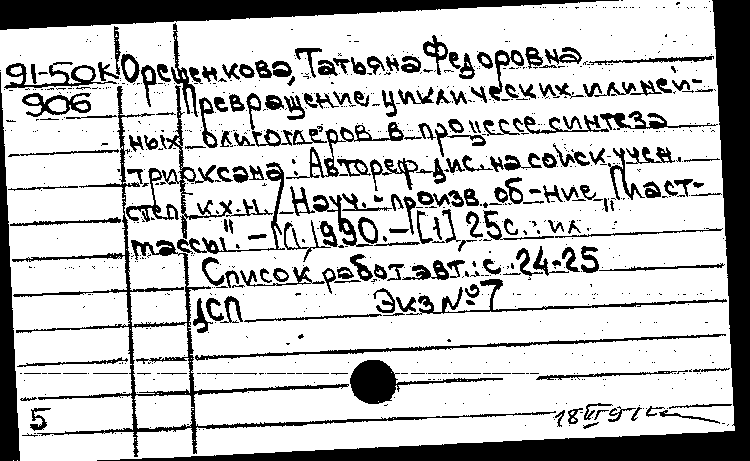 91-50К Орещенкова, Татьяна Федоровна
906 Превращение циклических и линей-
ных олигомеров в процессе синтеза
триоксана: Автореф. дис. на соиск. учен.
степ. к.х.н. / Науч.-произв. об-ние "Пласт-
массы". – М. 1990. – [1] 25с.: ил.
Список работ авт.: с. 24-25
1СП Экз №7
5 18 VI 91